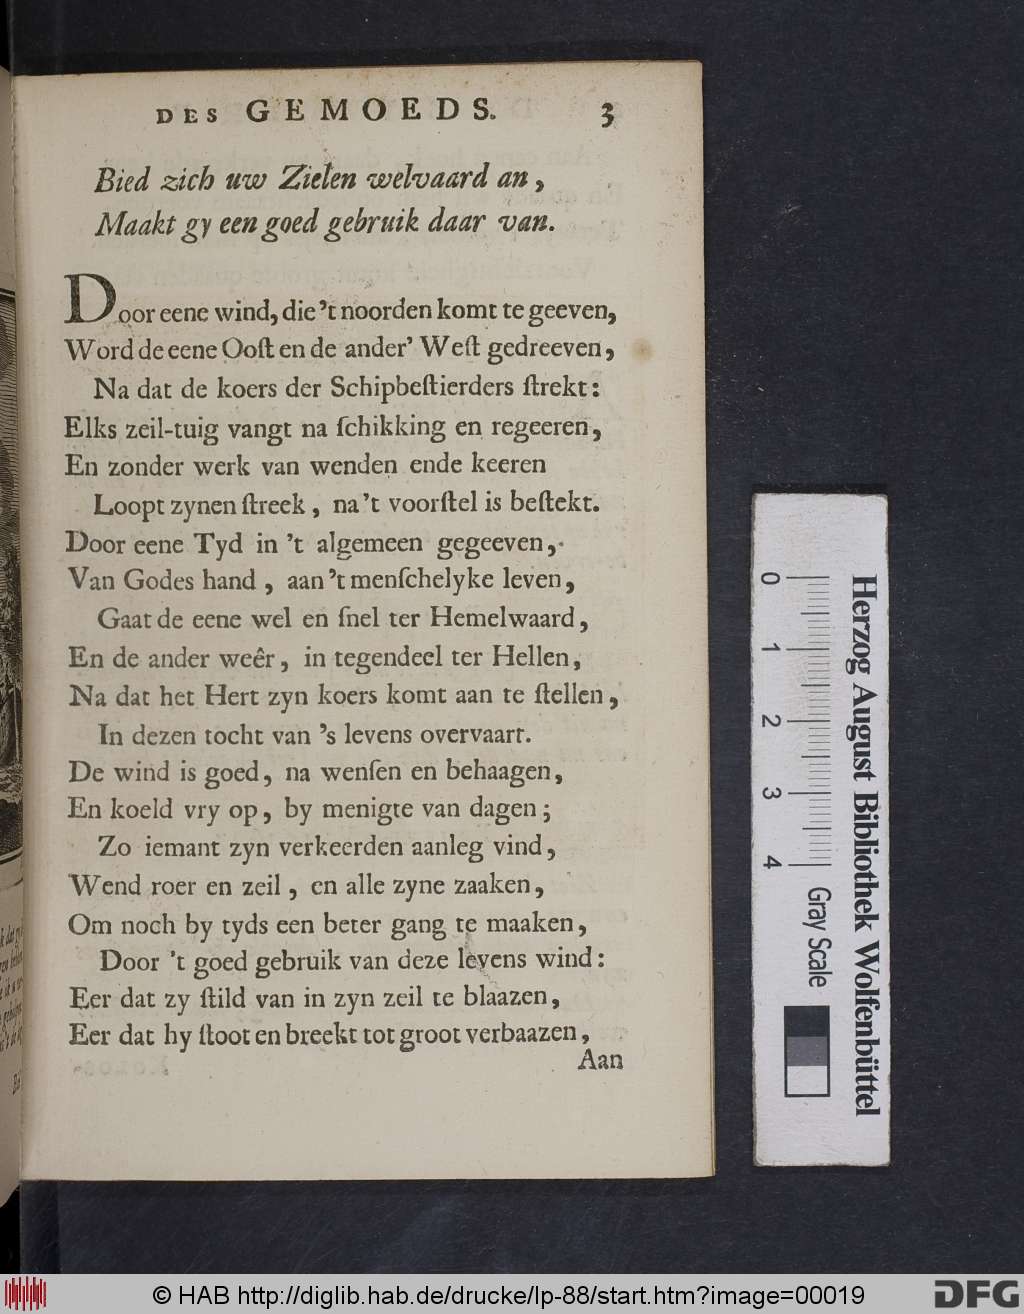 DES GEMOEDS. 3
Bied zich uw Zielen welvaard an,
Maakt gy een goed gebruik daar van.
Door eene wind, die 't noorden komt te geeven,
Word de eene Ooſt en de ander' Weſt gedreeven,
Na dat de koers der Schipbeſtierders ſtrekt:
Elks zeil-tuig vangt na ſchikking en regeeren,
En zonder werk van wenden ende keeren
Loopt zynen ſtreek, na 't voorſtel is beſtekt.
Door eene Tyd in 't algemeen gegeeven,
Van Godes hand, aan 't menſchelyke leven,
Gaat de eene wel en ſnel ter Hemelwaard,
En de ander weêr, in tegendeel ter Hellen,
Na dat het Hert zyn koers komt aan te ſtellen,
In dezen tocht van 's levens overvaart.
De wind is goed, na wenſen en behaagen,
En koeld vry op, by menigte van dagen;
Zo iemant zyn verkeerden aanleg vind,
Wend roer en zeil, en alle zyne zaaken,
Om noch by tyds een beter gang te maaken,
Door 't goed gebruik van deze levens wind:
Eer dat zy ſtild van in zyn zeil te blaazen,
Eer dat hy ſtoot en breekt tot groot verbaazen,
Aan
0 1 2 3 4
Gray Scale
Herzog August Bibliothek Wolfenbüttel
© HAB http://diglib.hab.de/drucke/lp-88/start.htm?image=00019
DFG